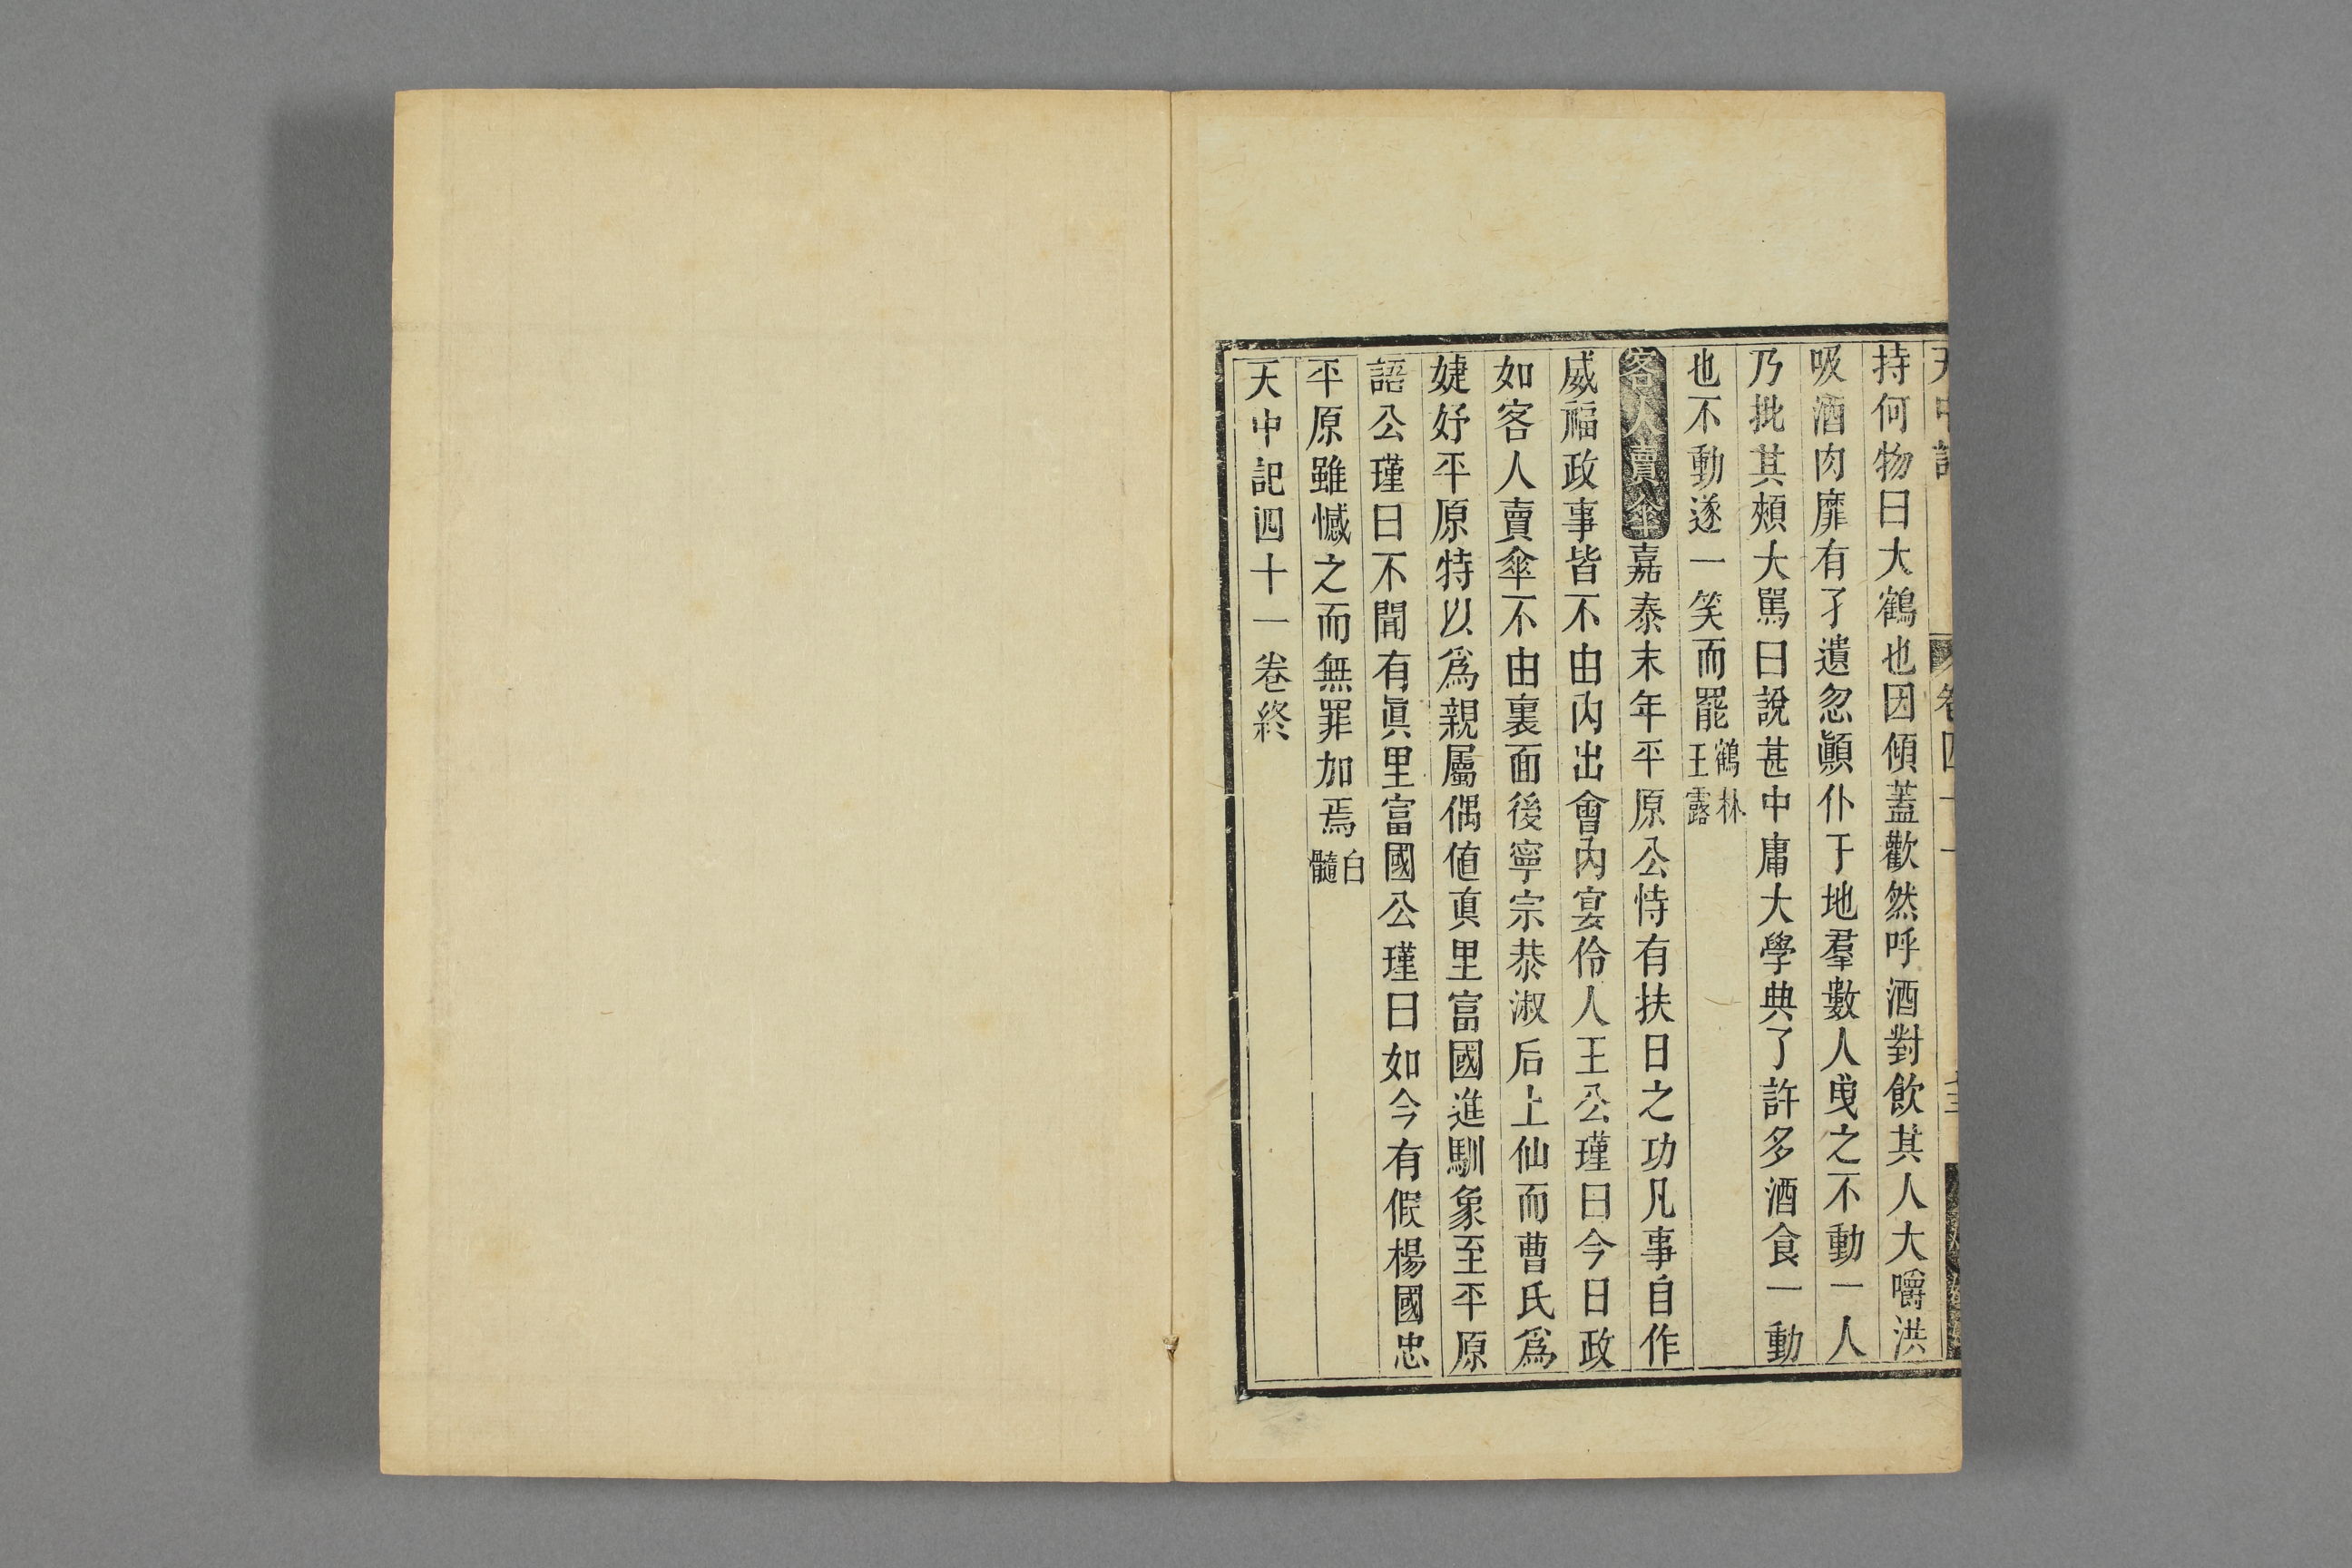 持何物曰大鶴也因傾蓋歡然呼酒對飲其人大嚼洪
吸酒肉靡有孑遺忽顚仆于地羣數人曳之不動一人
乃批其頰大駡曰說甚中庸大學典了許多酒食一動
也不動遂一笑而罷鶴林王露
客人賣傘嘉泰末年平原公恃有扶日之功凡事自作
威福政事皆不由內出會內宴伶人王公瑾曰今日政
如客人賣傘不由裏面後寧宗恭淑后上仙而曹氏爲
婕妤平原特以爲親屬偶值眞里富國進馴象至平原
語公瑾曰不聞有眞里富國公瑾曰如今有假楊國忠
平原雖憾之而無罪加焉白髓
天中記四十一卷終